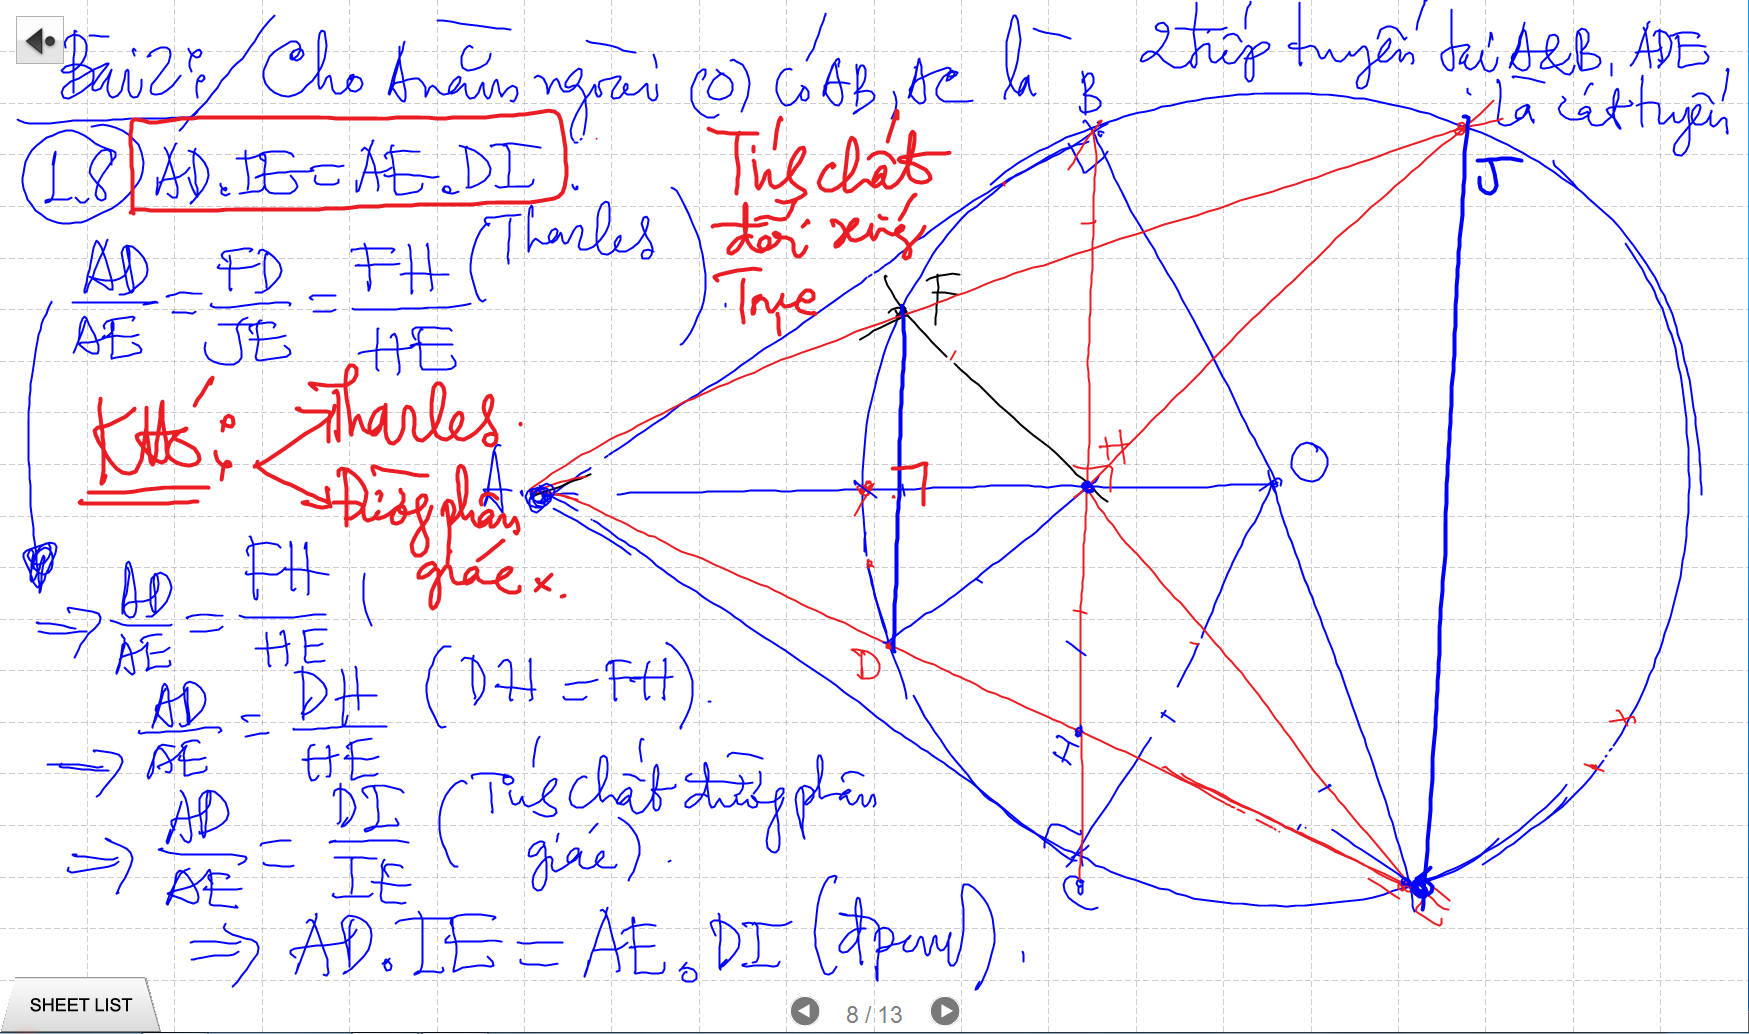 Bài 2: Cho A nằm ngoài (O) có AB, AC là 2 tiếp tuyến tại A & B, ADE
là cát tuyến
1.8 AD.IE = AE.DI.
AD/AE = FD/JE = FH/HE (Tharles)
Tính chất
đối xứng
Trục
KTHỗ:
Tharles.
Đường phân
giác
=> AD/AE = FH/HE
-> AD/AE = DH/HE (DH = FH).
=> AD/AE = DI/IE (Tính chất đường phân
giác).
=> AD.IE = AE.DI (đpcm).
B
J
F
A
H
O
D
I
C
E
SHEET LIST
8 / 13